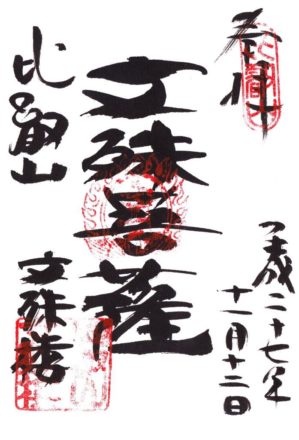 奉拝
平成二十七年
十一月十二日
文殊菩薩
比叡山
文殊楼